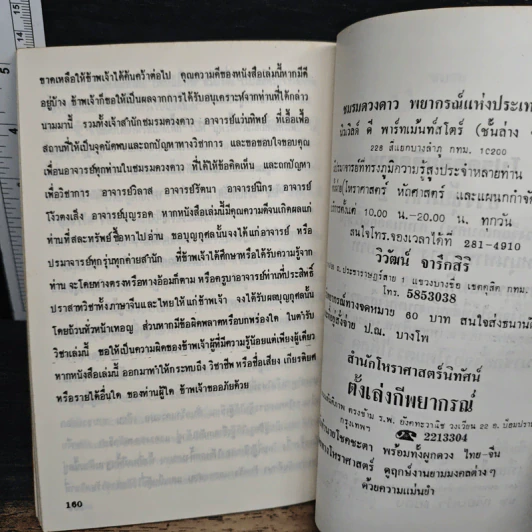 ขาดเหลือให้ข้าพเจ้าได้ค้นคว้าต่อไป คุณความดีของหนังสือเล่มนี้หากมีดี
อยู่บ้าง ข้าพเจ้าก็ขอให้เป็นผลจากการได้รับอนุเคราะห์จากท่านที่ได้กล่าว
นามมานี้ รวมทั้งเจ้าสำนักชมรมดวงดาว อาจารย์แว่นทิพย์ ที่เอื้อเฟื้อ
สถานที่ให้เป็นจุดนัดพบและถกปัญหาทางวิชาการ และขอขอบใจขอบคุณ
เพื่อนอาจารย์ทุกท่านในชมรมดวงดาว ที่ได้ให้ข้อคิดเห็น และถกปัญหา
เพื่อวิชาการ อาจารย์วิลาส อาจารย์รัตนา อาจารย์นิกร อาจารย์
โง้วคงเส็ง อาจารย์บุญรอด หากหนังสือเล่มนี้มีคุณความดีจนเกิดผลแก่
ท่านที่สละทรัพย์ซื้อหาไปอ่าน ขอบุญกุศลนั้นจงได้แก่อาจารย์ หรือ
ปรมาจารย์ทุกรุ่นทุกค่ายสำนัก ที่ข้าพเจ้าได้ศึกษาหรือได้รับความรู้จาก
ท่าน จะโดยทางตรงหรือทางอ้อมก็ตาม หรือครูบาอาจารย์ท่านที่ประสิทธิ์
ประสาทวิชาทั้งภาษาจีนและไทยให้แก่ข้าพเจ้า จงได้รับผลบุญกุศลนั้น
โดยถ้วนทั่วหน้าเทอญ ส่วนหากมีข้อผิดพลาดหรือบกพร่องใด ในตำรับ
วิชาเล่มนี้ ขอให้เป็นความผิดของข้าพเจ้าผู้ที่มีความรู้น้อยแต่เพียงผู้เดียว
หากหนังสือเล่มนี้ ออกมาทำให้กระทบถึง วิชาชีพ หรือชื่อเสียง เกียรติยศ
หรือรายได้อื่นใด ของท่านผู้ใด ข้าพเจ้าขออภัยด้วย
160
ชมรมดวงดาว พยากรณ์แห่งประเท
ดี พาร์ทเม้นท์สโตร์ (ชั้นล่าง
228 สี่แยกบางลำภู กทม. 10200
อาจารย์ที่ทรงภูมิความรู้สูงประจำหลายท่าน
โหราศาสตร์ หัตถศาสตร์ และแผนกกำจัด
ตั้งแต่ 10.00 น.-20.00 น. ทุกวัน
สนใจโทร.จองเวลาได้ที่ 281-4910
วิวัฒน์ จารึกสิริ
ถ.ประชาราษฎร์สาย 1 แขวงบางซื่อ เขตดุสิต กทม.
โทร. 5853038
พยากรณ์ทางจดหมาย 60 บาท สนใจส่งธนาณั
สั่งจ่าย ป.ณ. บางโพ
สำนักโหราศาสตร์นิทัศน์
ตั้งเล่งกี่พยากรณ์
กรุงเทพฯ
☎ 2213304
ทำนายโชคชะตา พร้อมทั้งผูกดวง ไทย-จีน
ทางโหราศาสตร์ ดูฤกษ์งานยามมงคลต่างๆ
ด้วยความแม่นยำ
5
4